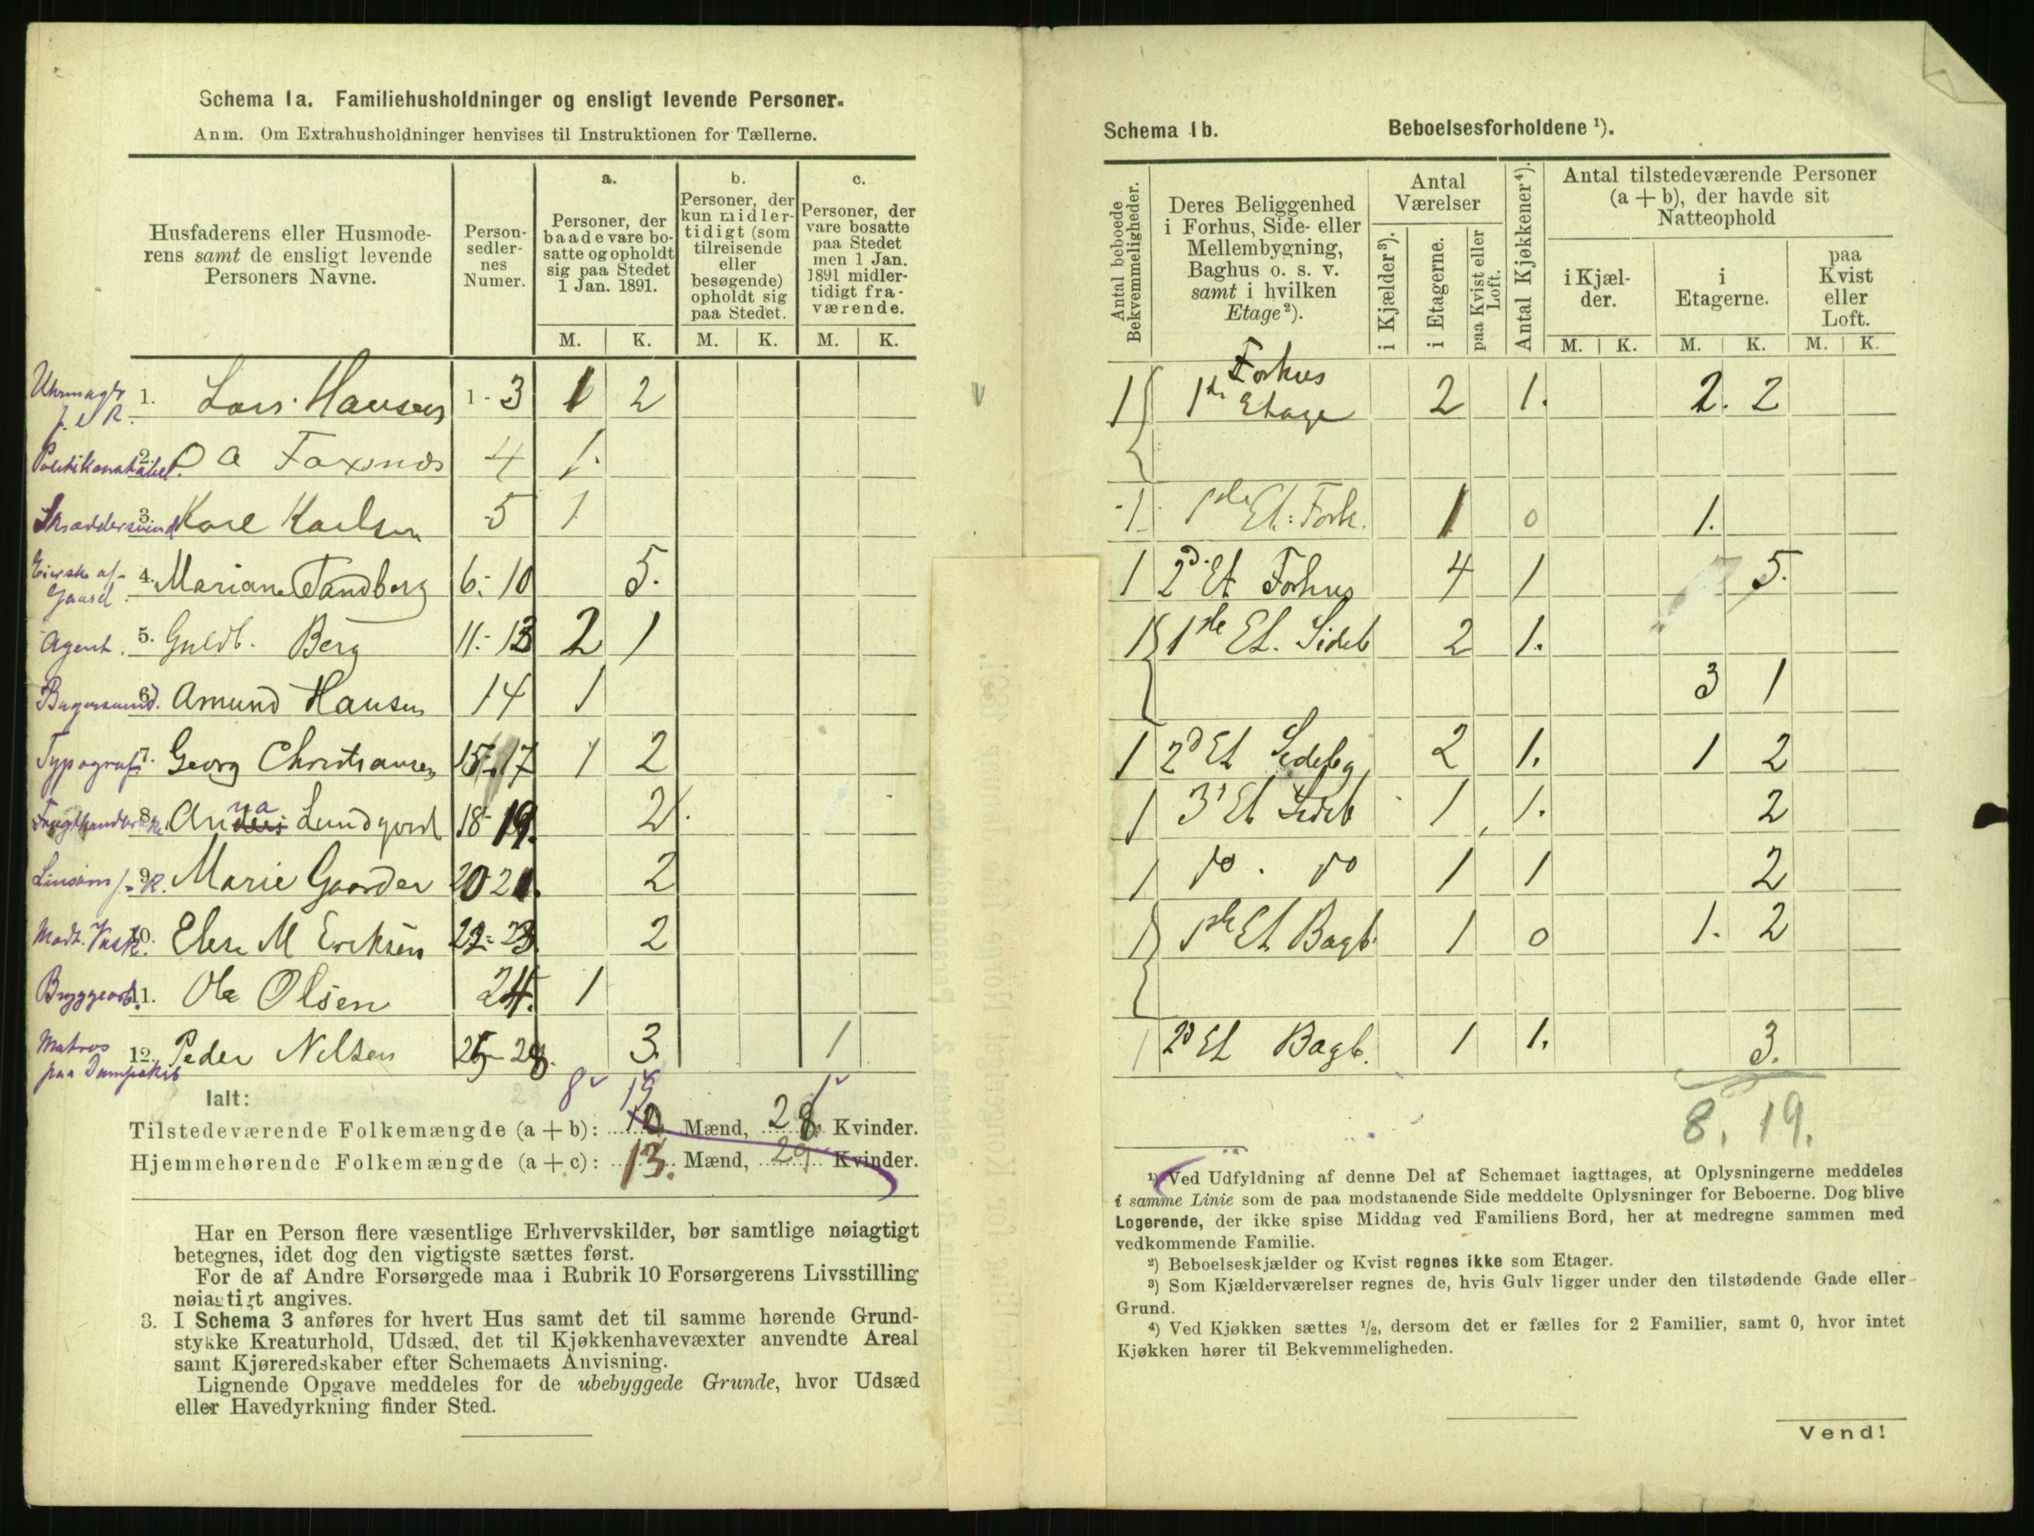 Schema 1a. Familiehusholdninger og ensligt levende Personer.
Anm. Om Extrahusholdninger henvises til Instruktionen for Tællerne.
Husfaderens eller Husmode-
rens samt de ensligt levende
Personers Navne.
Person-
sedler-
nes
Numer.
a.
Personer, der
baade vare bo-
satte og opholdt
sig paa Stedet
1 Jan. 1891.
b.
Personer, der
kun midler-
tidigt (som
tilreisende
eller
besøgende)
opholdt sig
paa Stedet.
c.
Personer, der
vare bosatte
paa Stedet
men 1 Jan.
1891 midler-
tidigt fra-
værende.
M. K. M. K. M. K.
1. Lars Hansen 1-3 1 2
2. O A Foxnæs 4 1.
3. Karl Karlsen 5 1
4. Mariane Tandberg 6-10 5.
Agent. 5. Guldb. Berg 11-13 2 1
6. Amund Hansen 14 1
Typograf 7. Georg Christiansen 15-17 1 2
8. Anna Lundqvord 18-19. 2.
9. Marie Gaarder 20-21. 2
10. Elise M Eriksen 22-23. 2
11. Ole Olsen 24. 1
Matros
paa Dampskib
12. Peder Nilsen 25-28. 3. 1
8 19 1
Ialt:
Tilstedeværende Folkemængde (a + b): 10 Mænd, 28. Kvinder.
Hjemmehørende Folkemængde (a + c): 13. Mænd, 29 Kvinder.
Har en Person flere væsentlige Erhvervskilder, bør samtlige nøiagtigt
betegnes, idet dog den vigtigste sættes først.
For de af Andre Forsørgede maa i Rubrik 10 Forsørgerens Livsstilling
nøiagtigt angives.
3. I Schema 3 anføres for hvert Hus samt det til samme hørende Grund-
stykke Kreaturhold, Udsæd, det til Kjøkkenhavevæxter anvendte Areal
samt Kjøreredskaber efter Schemaets Anvisning.
Lignende Opgave meddeles for de ubebyggede Grunde, hvor Udsæd
eller Havedyrkning finder Sted.
Schema 1b. Beboelsesforholdene ¹).
Antal beboede
Bekvemmeligheder.
Deres Beliggenhed
i Forhus, Side- eller
Mellembygning,
Baghus o. s. v.
samt i hvilken
Etage²).
Antal
Værelser
i Kjælder³).
i Etagerne.
paa Kvist eller
Loft.
Antal Kjøkkener⁴).
Antal tilstedeværende Personer
(a + b), der havde sit
Natteophold
i Kjæl-
der.
i
Etagerne.
paa
Kvist
eller
Loft.
M. K. M. K. M. K.
1 Forhus
1ste Etage 2 1. 2. 2
1 1ste Et: Forh. 1 0 1.
1 2d Et Forhus 4 1 5.
1 1ste Et. Sideb 2 1.
3 1
1 2d Et Sidebg 2 1. 1 2
1 3d Et Sideb 1 1. 2
1 do. do 1 1 2
1 1ste Et Bagb. 1 0 1. 2
1 2d Et Bagb. 1 1. 3.
8. 19.
¹) Ved Udfyldning af denne Del af Schemaet iagttages, at Oplysningerne meddeles
i samme Linie som de paa modstaaende Side meddelte Oplysninger for Beboerne. Dog blive
Logerende, der ikke spise Middag ved Familiens Bord, her at medregne sammen med
vedkommende Familie.
²) Beboelseskjælder og Kvist regnes ikke som Etager.
³) Som Kjælderværelser regnes de, hvis Gulv ligger under den tilstødende Gade eller
Grund.
⁴) Ved Kjøkken sættes ½, dersom det er fælles for 2 Familier, samt 0, hvor intet
Kjøkken hører til Bekvemmeligheden.
Vend!